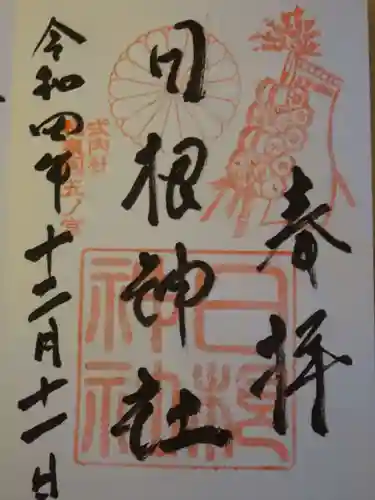 奉拝
日根神社
式内社
和泉五ノ宮
令和四年十二月十一日
日根神社